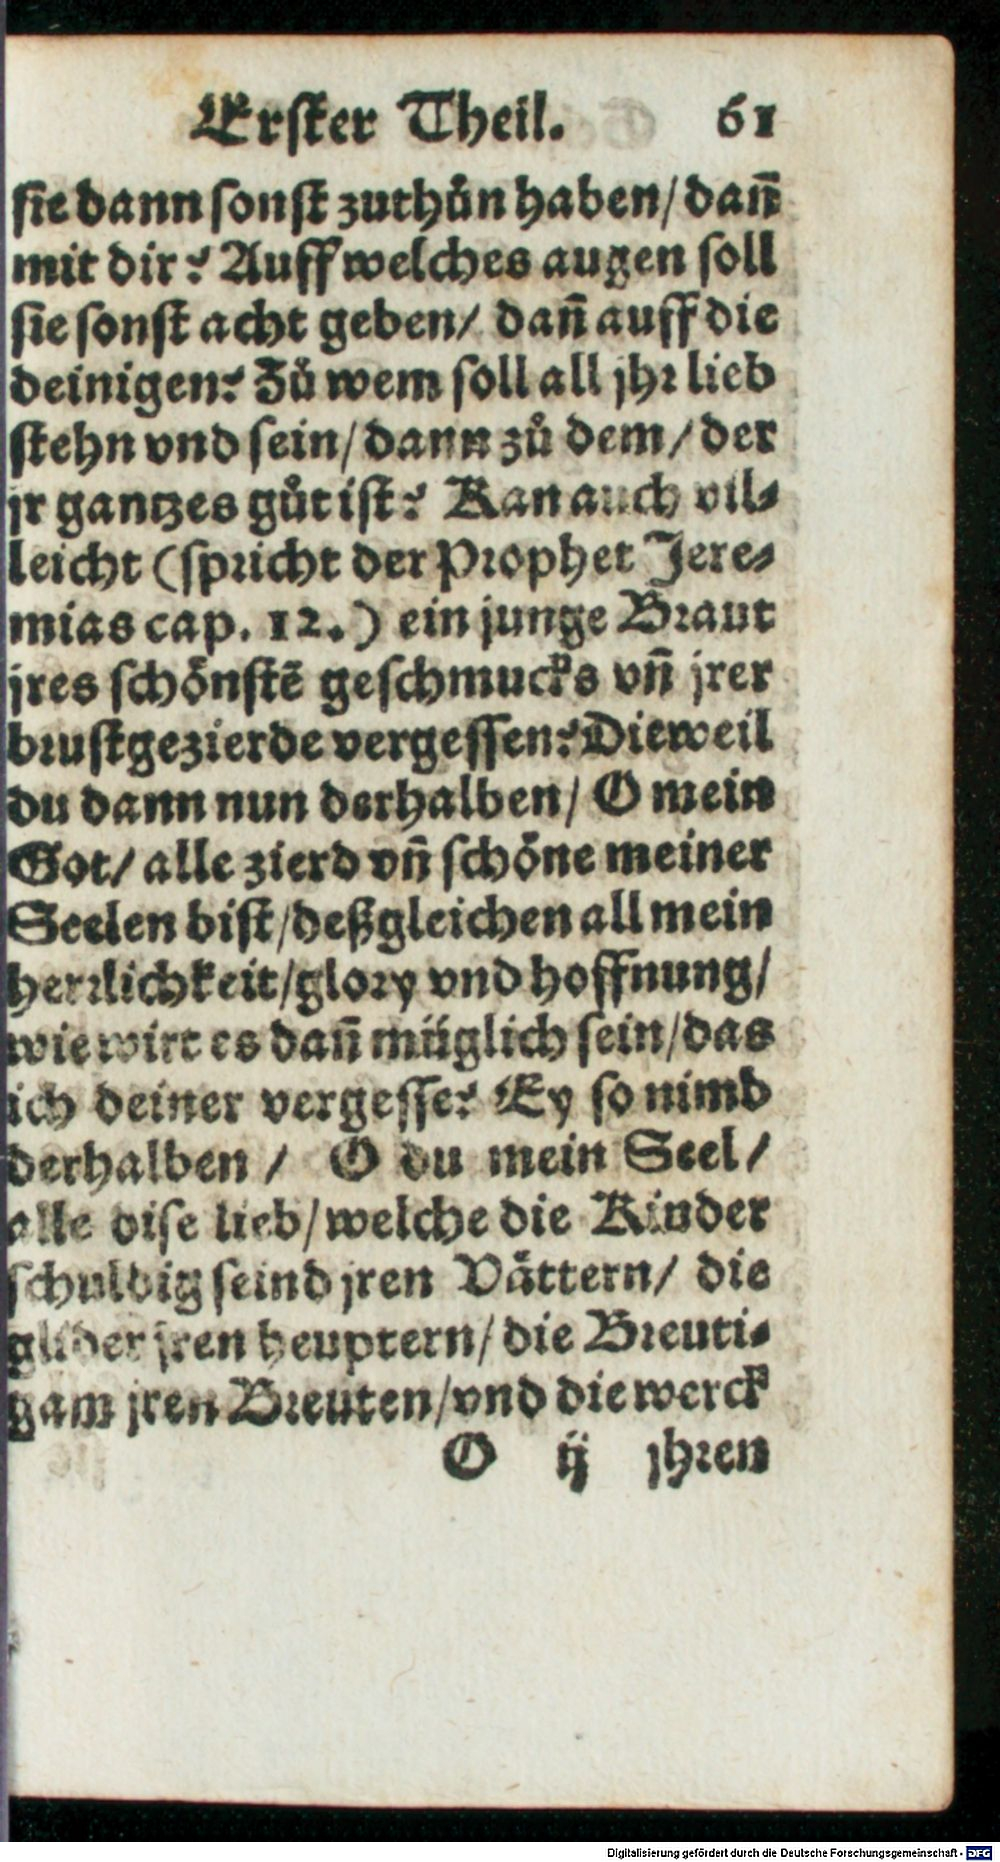 Erster Theil. 61
sie dann sonst zuthůn haben/ dañ
mit dir? Auff welches augen soll
sie sonst acht geben/ dañ auff die
deinigen? Zů wem soll all jhr lieb
stehn vnd sein/ dann zů dem/ der
jr gantzes gůt ist? Kan auch vil-
leicht (spricht der Prophet Jere-
mias cap. 12.) ein junge Braut
jres schönstē geschmucks vñ jrer
brustgezierde vergessen? Dieweil
du dann nun derhalben/ O mein
Got/ alle zierd vñ schöne meiner
Seelen bist/ deßgleichen all mein
herrlichkeit/ glory vnd hoffnung/
wie wirt es dañ müglich sein/ das
ich deiner vergesse? Ey so nimb
derhalben / O du mein Seel/
alle dise lieb/ welche die Kinder
schuldig seind jren Vättern/ die
glider jren heuptern/ die Breuti-
gam jren Breuten/ vnd die werck
O ij jhren
Digitalisierung gefördert durch die Deutsche Forschungsgemeinschaft - DFG